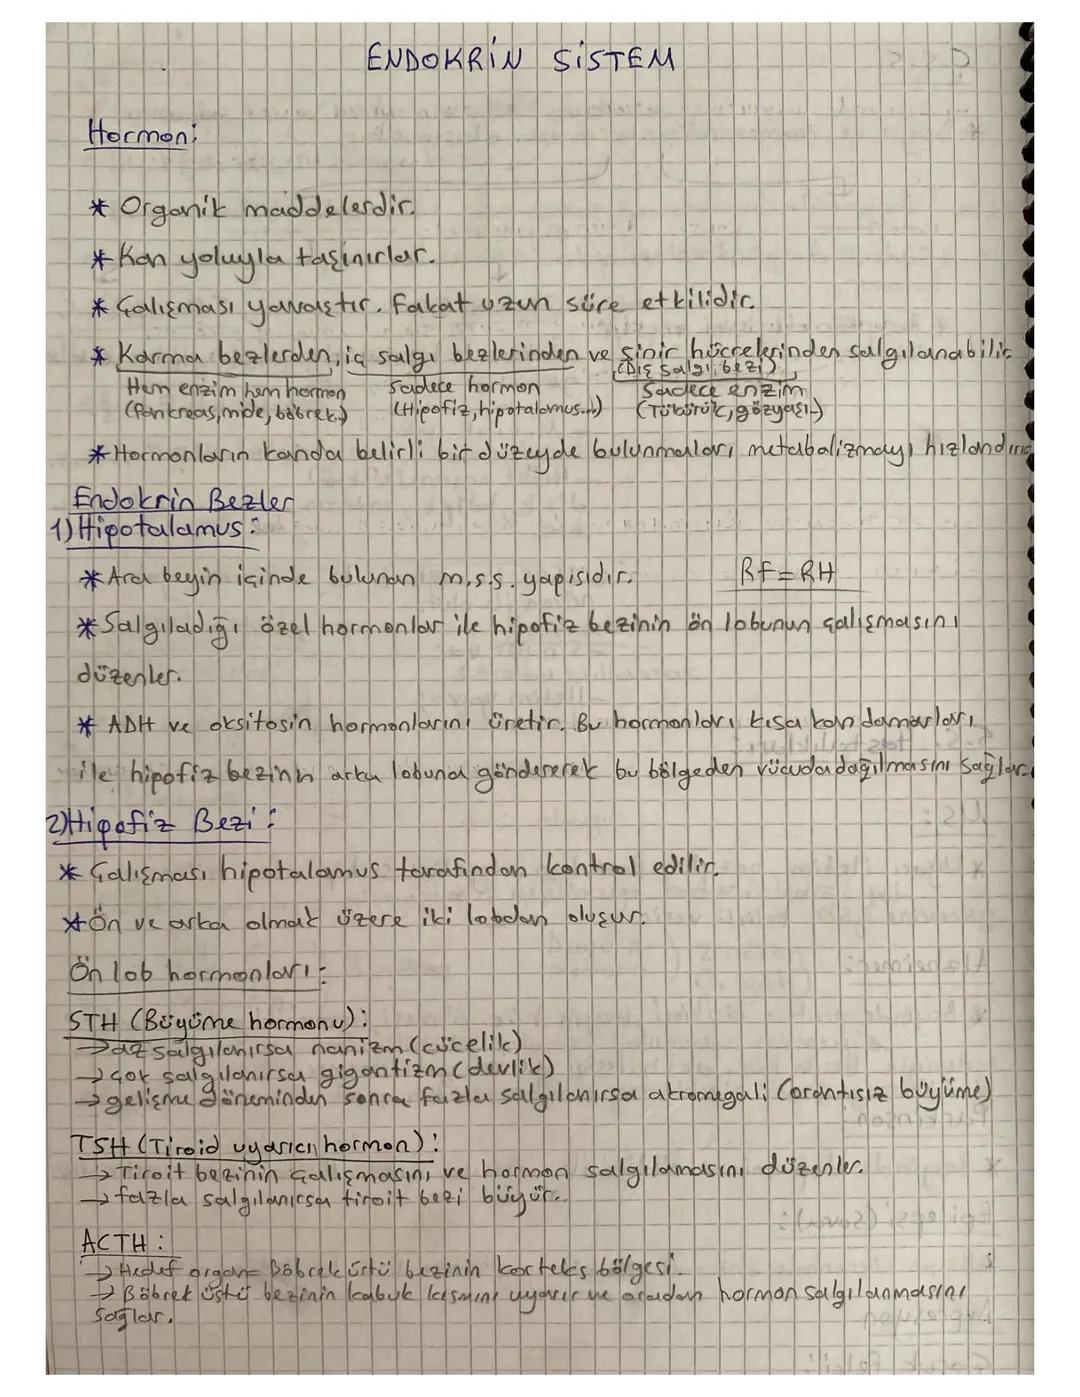 ENDOKRİN SİSTEM
Hormon:
* Organik maddelerdir.
* Kan yoluyla taşınırlar.
* Çalışması yavaştır. Fakat uzun süre etkilidir.
* Karma bezlerden, iç salgı bezlerinden ve sinir hücrelerinden salgılanabilir
(Dış salgı bezi)
Hem enzim hem hormon Sadece hormon Sadece enzim
(Pankreas, mide, böbrek.) (Hipofiz, hipotalamus...) (Tükürük, gözyaşı..)
* Hormonların kanda belirli bir düzeyde bulunmaları metabalizmayı hızlandırır
Endokrin Bezler
1) Hipotalamus:
* Ara beyin içinde bulunan m.s.s. yapısıdır. RF=RH
* Salgıladığı özel hormonlar ile hipofiz bezinin ön lobunun çalışmasını
düzenler.
* ADH ve oksitosin hormonlarını üretir. Bu hormonları kısa kan damarları
ile hipofiz bezinin arka lobuna göndererek bu bölgeden vücuda dağılmasını sağlar.
2) Hipofiz Bezi:
* Çalışması hipotalamus tarafından kontrol edilir.
* Ön ve arka olmak üzere iki lobdan oluşur.
Ön lob hormonları:
STH (Büyüme hormonu):
→ az salgılanırsa nanizm (cücelik)
→ çok salgılanırsa gigantizm (devlik)
→ gelişme döneminden sonra fazla salgılanırsa akromegali (orantısız büyüme)
TSH (Tiroid uyarıcı hormon):
→ Tiroit bezinin çalışmasını ve hormon salgılamasını düzenler.
→ fazla salgılanırsa tiroit bezi büyür.
ACTH:
→ Hedef organ= Böbrek üstü bezinin korteks bölgesi.
→ Böbrek üstü bezinin kabuk kısmını uyarır ve oradan hormon salgılanmasını
sağlar.